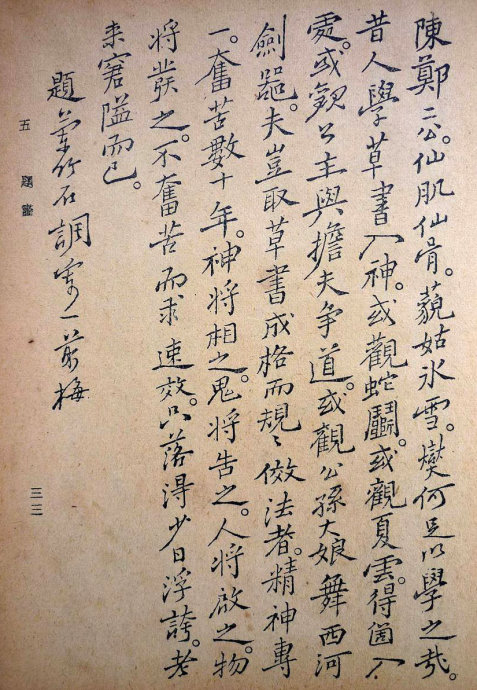 陳鄭二公。仙肌仙骨。藐姑冰雪。燮何足以學之哉。
昔人學草書入神。或觀蛇鬭。或觀夏雲。得箇入
處。或觀公主與擔夫争道。或觀公孫大娘舞西河
劍器。夫豈取草書成格而規〻倣法者。精神專
一。奮苦數十年。神將相之。鬼將告之。人將啟之。物
將發之。不奮苦而求速效。只落得少日浮誇。老
来窘隘而已。
題蘭竹石調寄一剪梅
五 題畫
三三